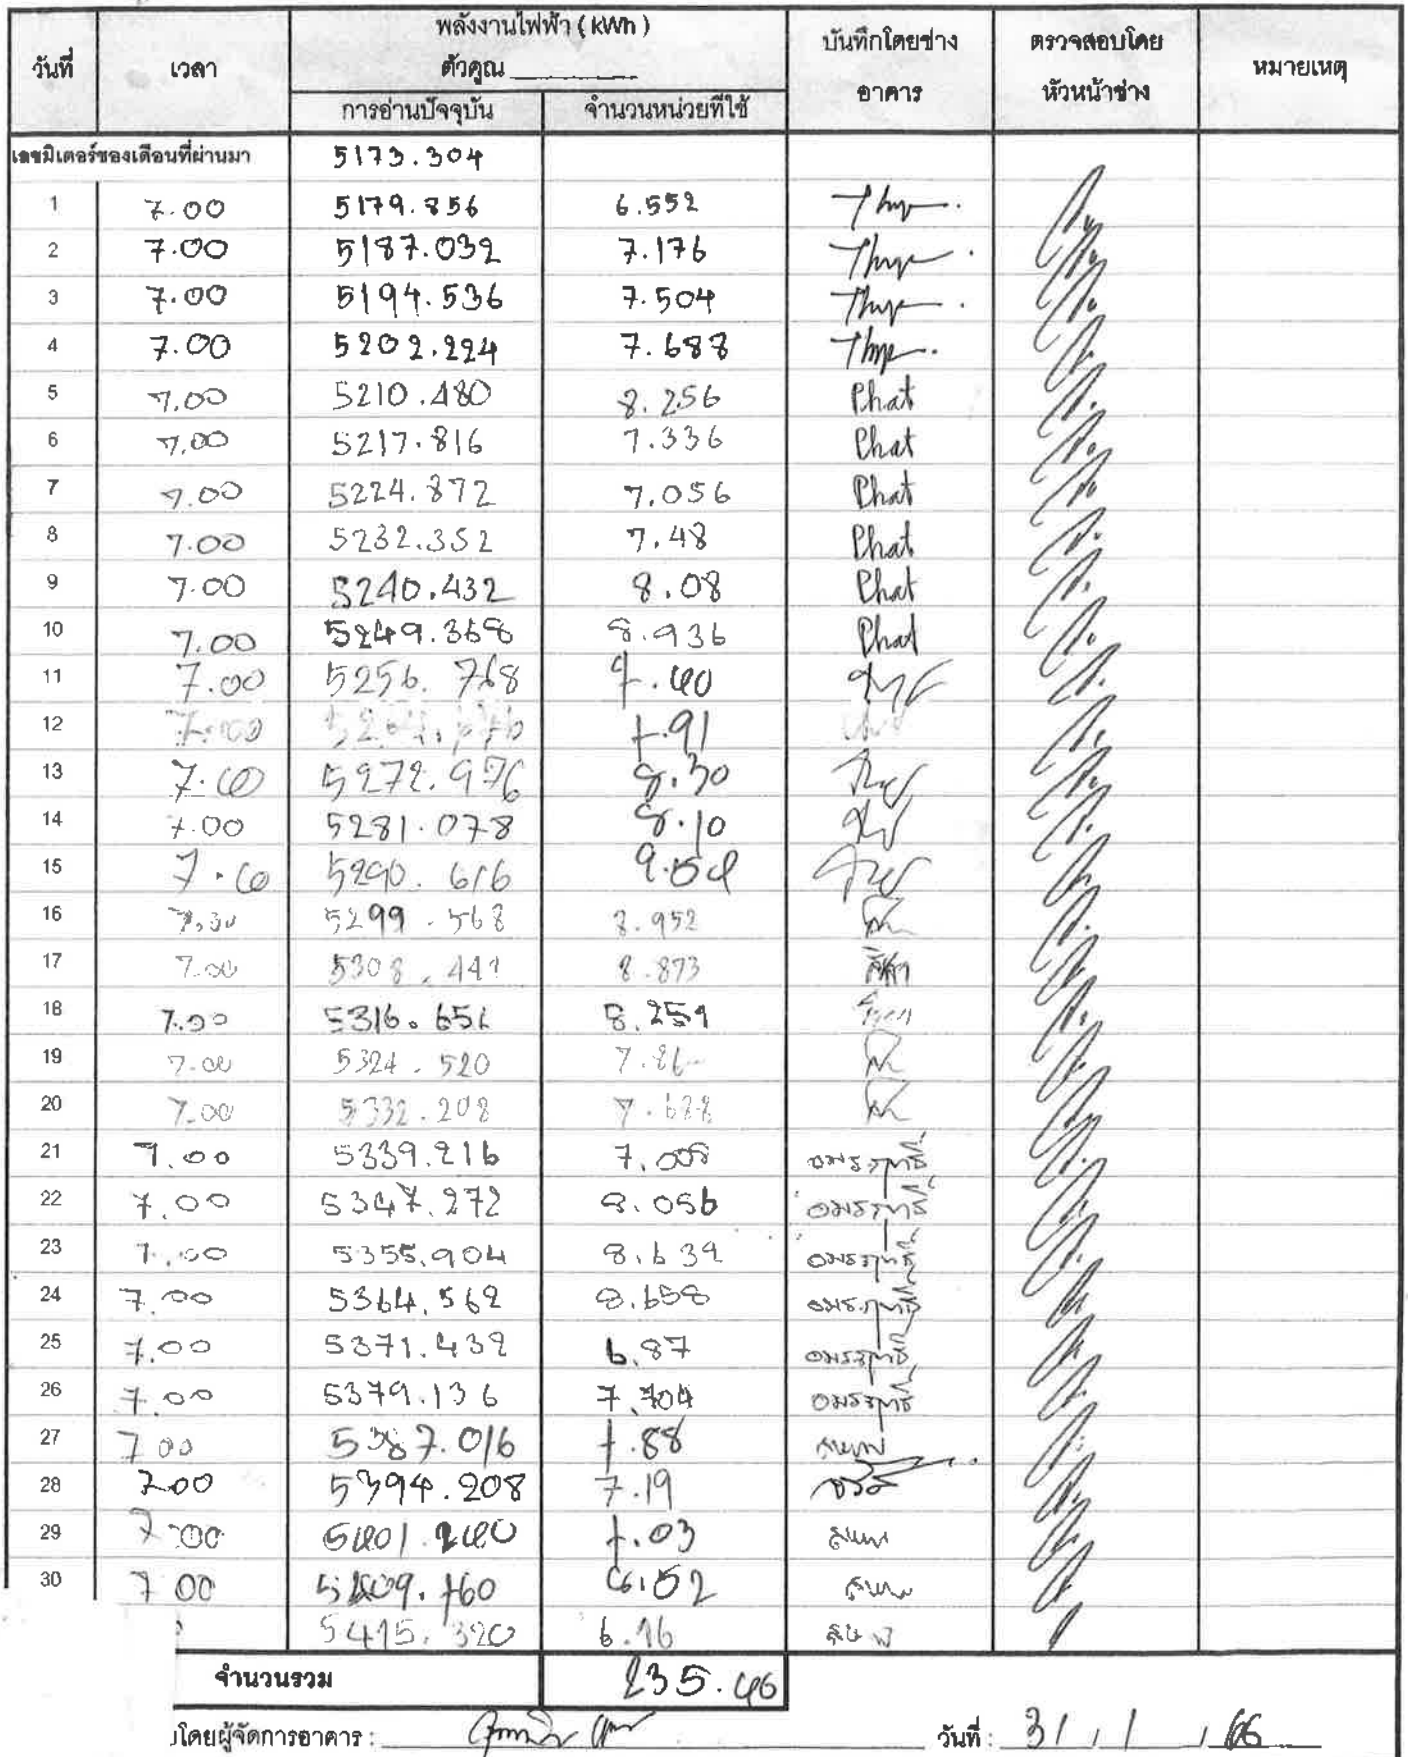 วันที่ เวลา พลังงานไฟฟ้า ( kWh ) บันทึกโดยช่างอาคาร ตรวจสอบโดยหัวหน้าช่าง หมายเหตุ
ตัวคูณ
การอ่านปัจจุบัน จำนวนหน่วยที่ใช้
เลขมิเตอร์ของเดือนที่ผ่านมา 5173.304
1 7.00 5179.856 6.552
2 7.00 5187.032 7.176
3 7.00 5194.536 7.504
4 7.00 5202.224 7.688
5 7.00 5210.480 8.256 Phat
6 7.00 5217.816 7.336 Phat
7 7.00 5224.872 7.056 Phat
8 7.00 5232.352 7.48 Phat
9 7.00 5240.432 8.08 Phat
10 7.00 5249.368 8.936 Phat
11 7.00 5256.768 7.40
12 7.00 7.91
13 7.00 5272.976 8.30
14 7.00 5281.078 8.10
15 7.00 5290.616 9.54
16 5299.568 8.952
17 7.00 5308.441 8.873
18 7.00 5316.656 8.259
19 7.00 5324.520 7.86
20 7.00 5332.208 7.688
21 7.00 5339.216 7.008
22 7.00 5347.272 8.056
23 7.00 5355.904 8.632
24 7.00 5364.562 8.658
25 7.00 5371.432 6.87
26 7.00 5379.136 7.704
27 7 00 5387.016 7.88
28 7.00 5394.208 7.19
29 7.00 5401.240 7.03
30 7 00 5409.160
5415.320 6.16
จำนวนรวม 235.46
โดยผู้จัดการอาคาร : วันที่ : 31 / 1 / 66